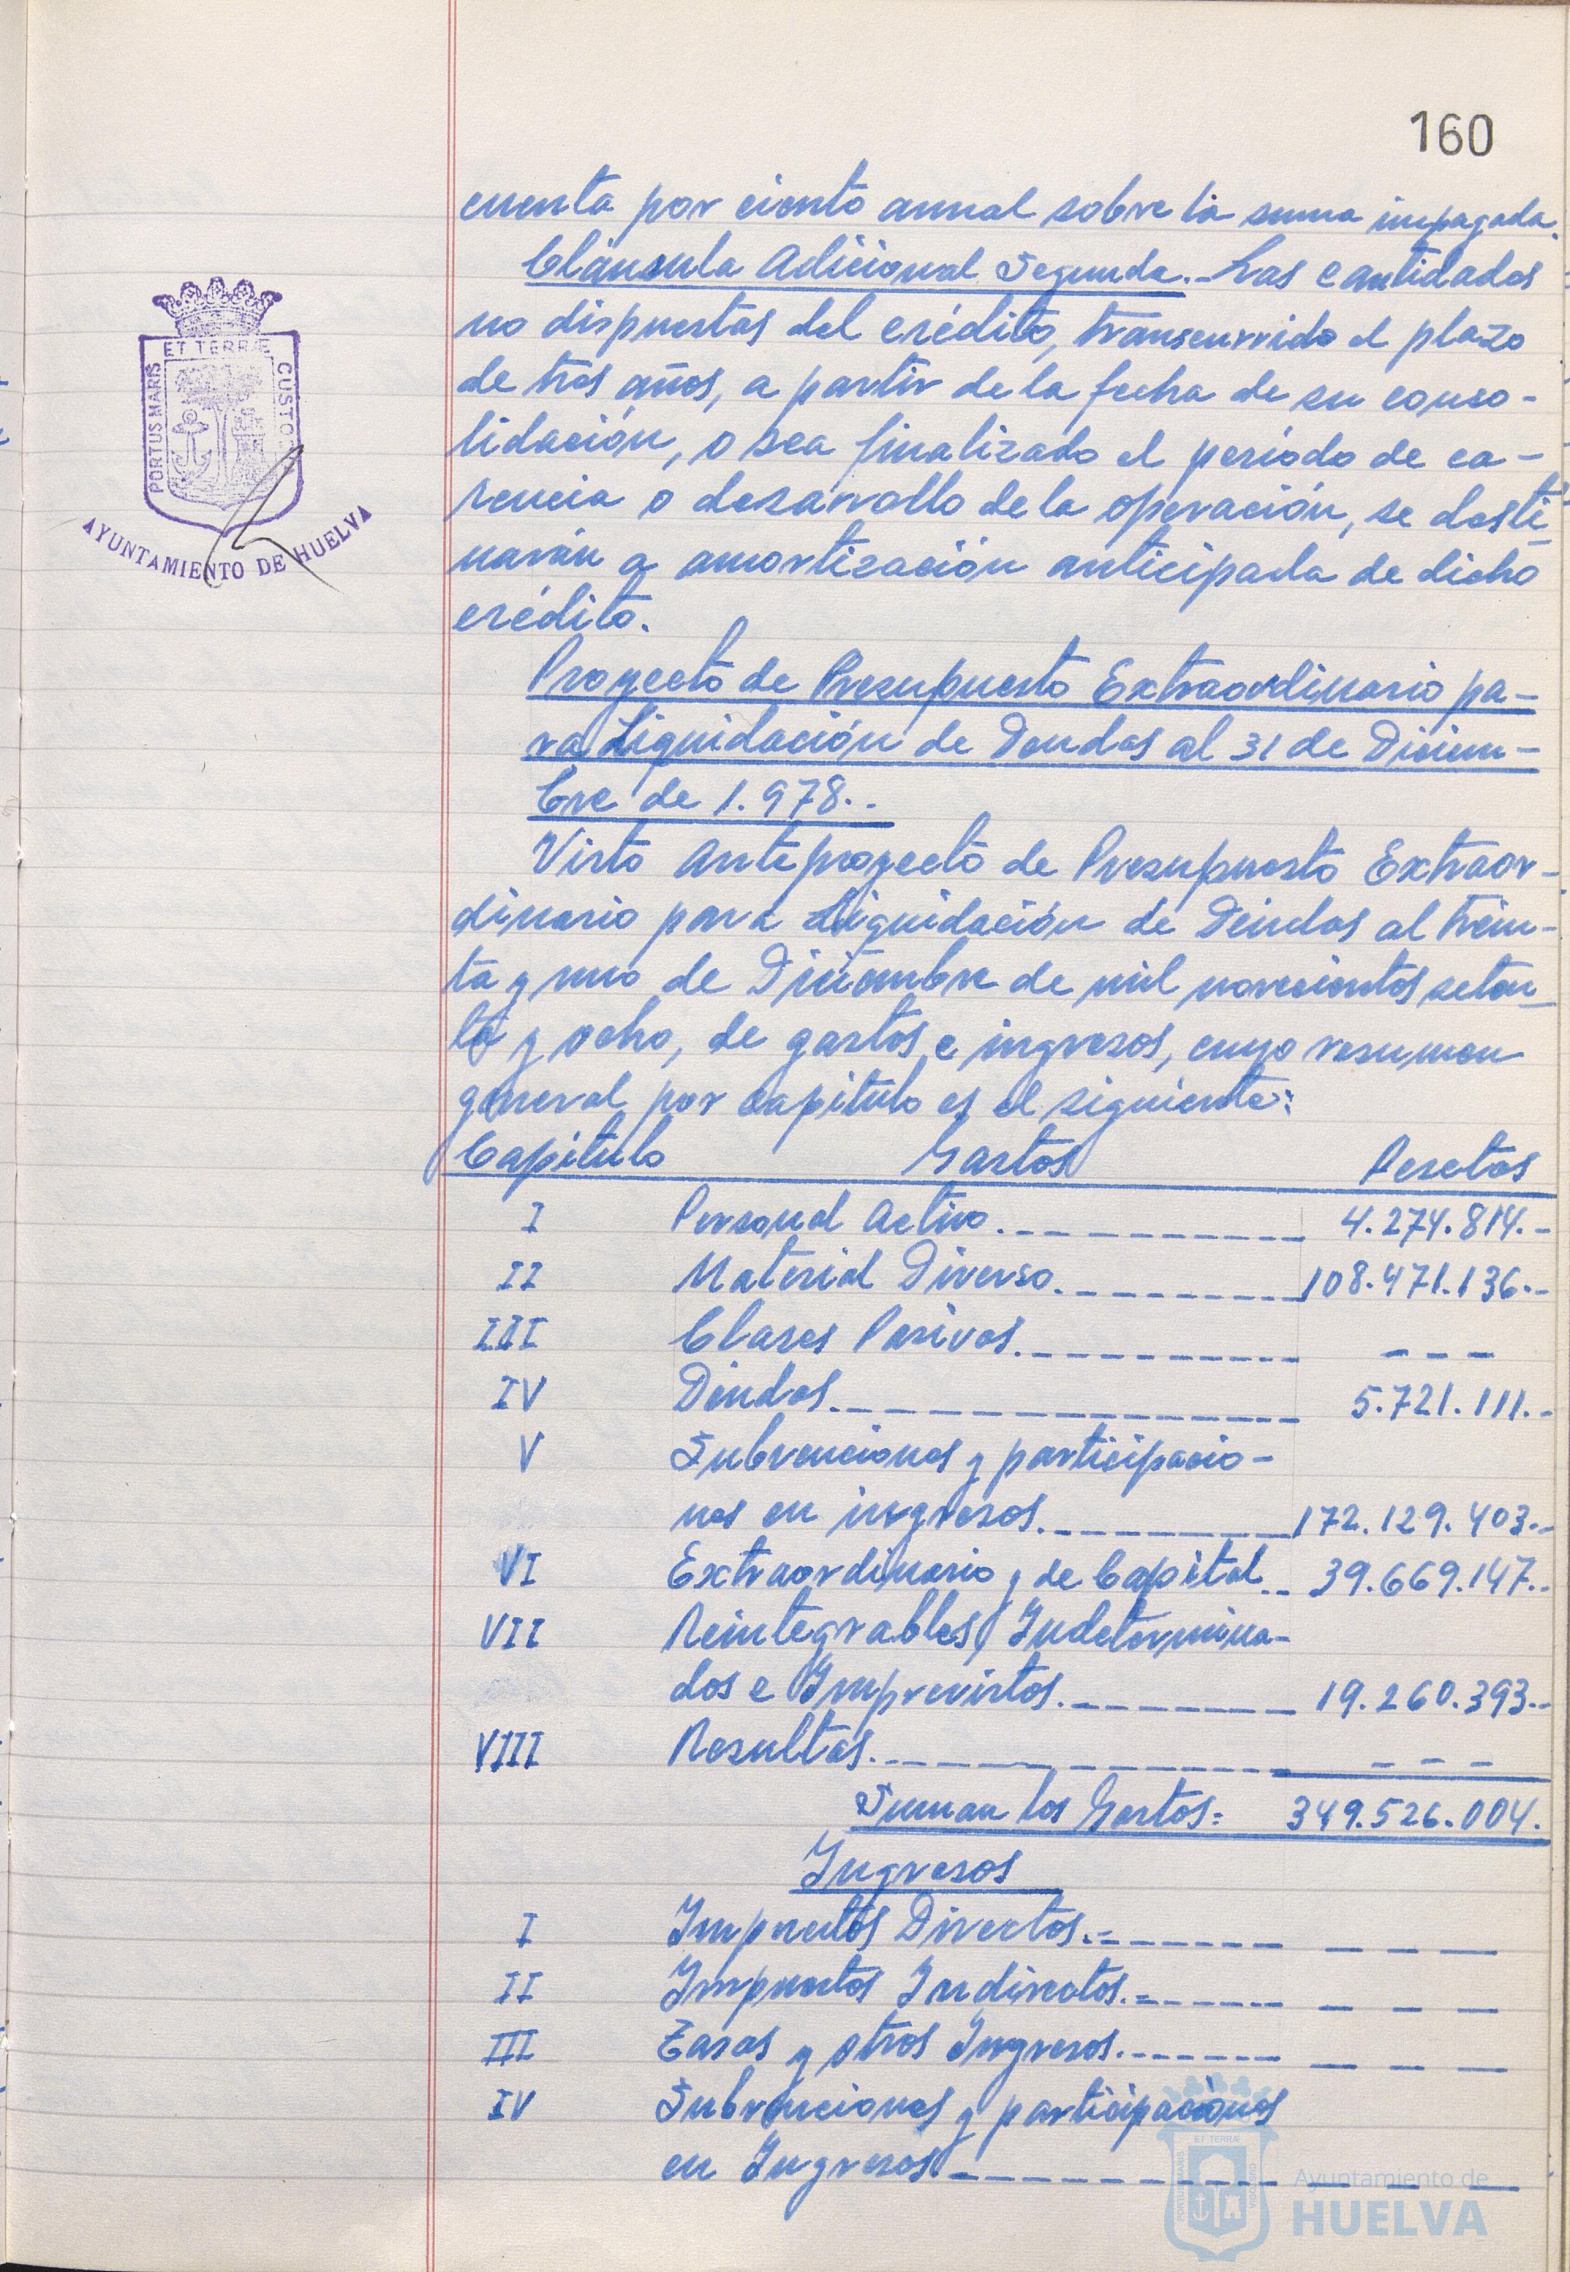 160
cuenta por ciento annal sobre la suma impagada.
Cláusula Adicional Segunda.- Las cantidades
no dispuestas del crédito, transcurrido el plazo
de tres años, a partir de la fecha de su conso-
lidación, o sea finalizado el período de ca-
rencia o desarrollo de la operación, se desti-
narán a amortización anticipada de dicho
crédito.
Proyecto de Presupuesto Extraordinario pa-
ra Liquidación de Deudas al 31 de Diciem-
bre de 1.978.-
Visto Anteproyecto de Presupuesto Extraor-
dinario para Liquidación de Deudas al trein-
ta y uno de Diciembre de mil novecientos seten
ta y ocho, de gastos e ingresos, cuyo resumen
general por capítulo es el siguiente:
Capítulo Gastos Pesetas
I Personal Activo. 4.274.814.-
II Material Diverso. 108.471.136.-
III Clases Pasivas. - - -
IV Deudas. 5.721.111.-
V Subvenciones y participacio-
nes en ingresos. 172.129.403.-
VI Extraordinario y de Capital 39.669.147.-
VII Reintegrables, Indetermina-
dos e Imprevistos. 19.260.393.-
VIII Resultas. - - -
Suman los Gastos= 349.526.004.
Ingresos
I Impuestos Directos.- - - -
II Impuestos Indirectos.- - - -
III Tasas y otros Ingresos. - - -
IV Subvenciones y participaciones
en Ingresos - - -
PORTUS MARIS ET TERRÆ CUSTOS
AYUNTAMIENTO DE HUELVA
Ayuntamiento de
HUELVA